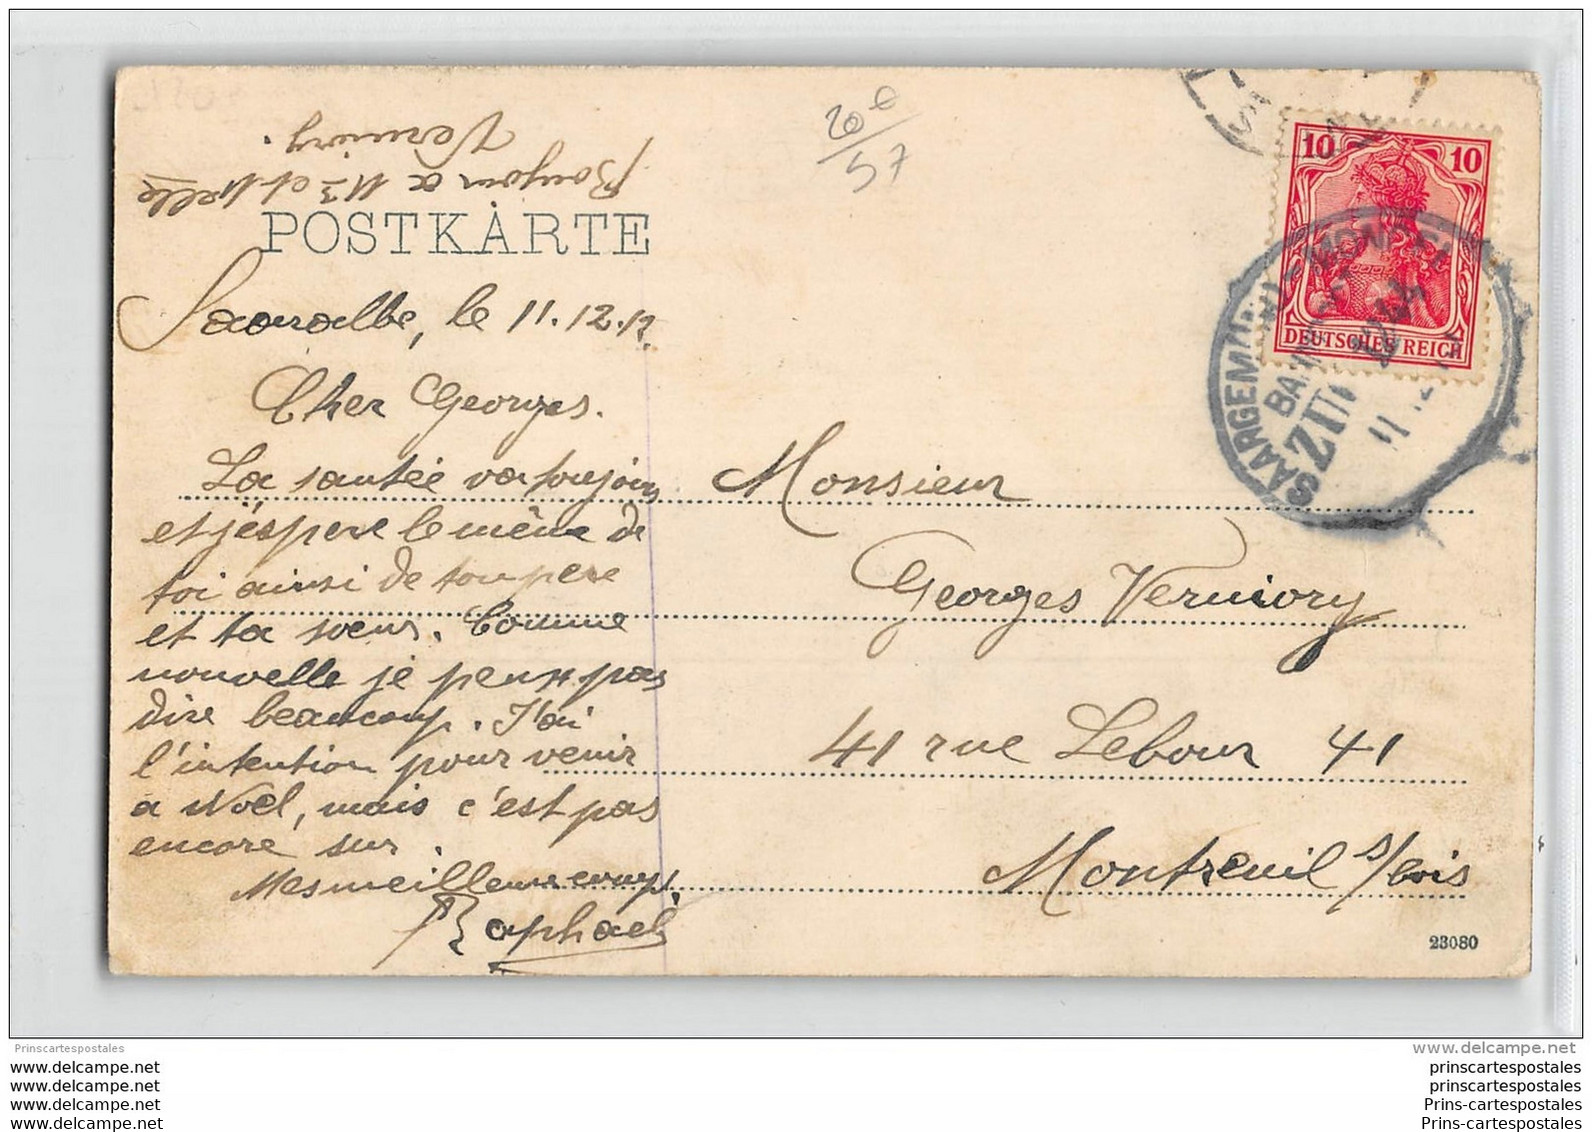 Bonjour à Mr et Melle
Verniory.
20 e
57
POSTKARTE
10 10
DEUTSCHES REICH
SAARGEMÜND-MONSEL
BAHNPOST
ZUG
11 12
Saaralbe, le 11.12.12
Cher Georges.
La santée va toujours
et j'éspere le même de
toi ainsi de ton pere
et ta soeur. Comme
nouvelle je peux pas
dire beaucoup. J'ai
l'intention pour venir
a Noël, mais c'est pas
encore sur.
Raphael
Monsieur
Georges Verniory
41 rue Lebour 41
Montreuil s/bois
23080
Prinscartespostales
www.delcampe.net
www.delcampe.net
www.delcampe.net
www.delcampe.net
www.delcampe.net
prinscartespostales
prinscartespostales
Prins-cartespostales
Prins-cartespostales